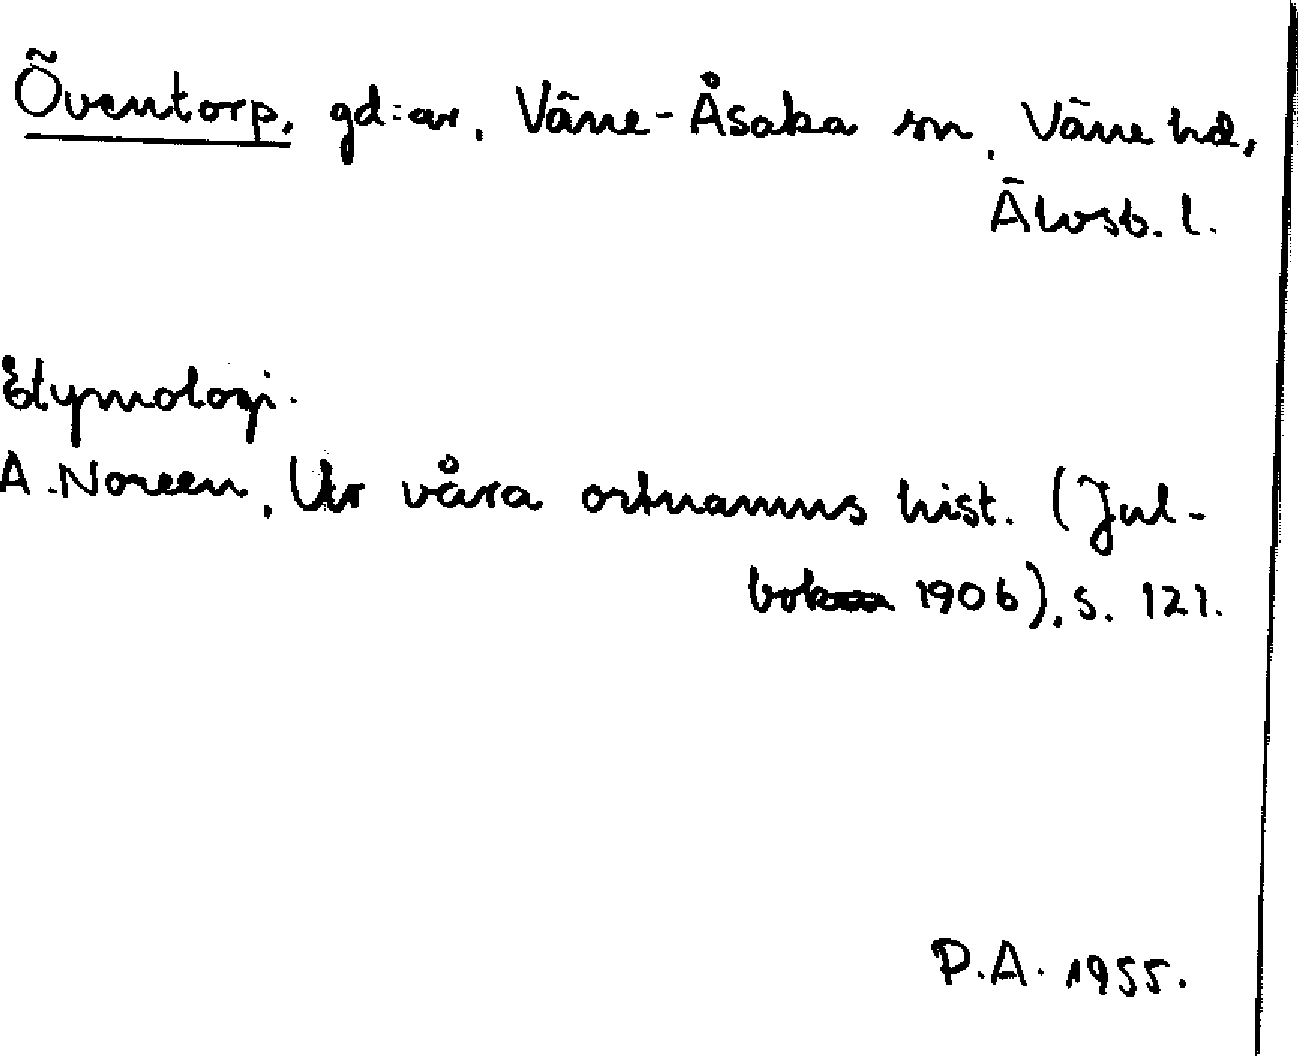 Öventorp, gd:ar, Väne-Åsaka sn, Väne hd,
Älvsb. l.
Etymologi.
A. Noreen, Ur våra ortnamns hist. (Jul-
bok 1906), s. 121.
P.A. 1955.